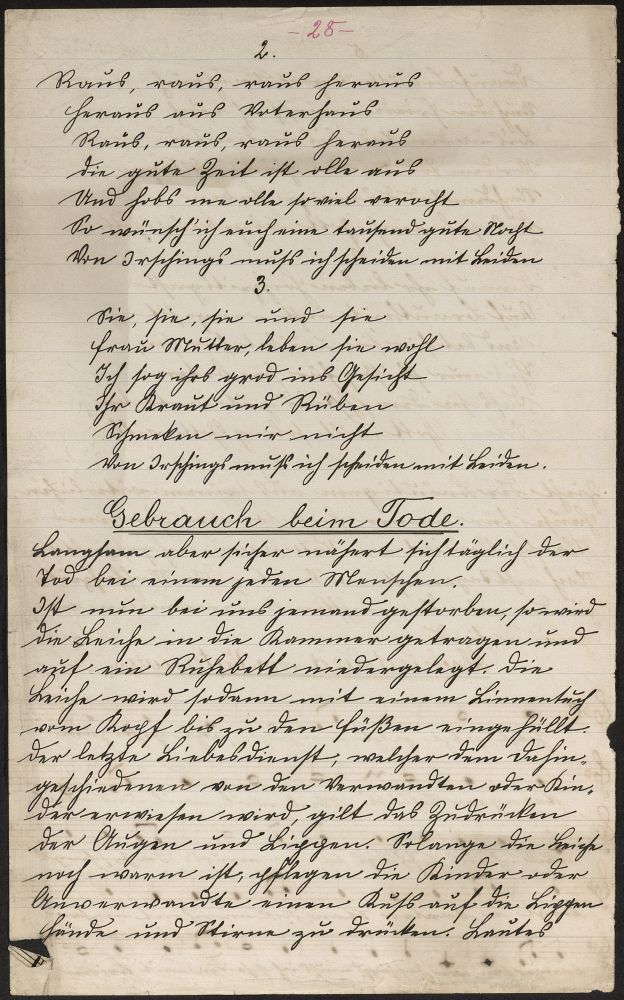 - 28 -
2.
Raus, raus, raus heraus
heraus aus Voterhaus
Raus, raus, raus heraus
die gute Zeit ist olle aus
Und hobs me olle so viel veracht
So wünsch' ich euch eine tausend gute Nacht
Von Irschings muss ich scheiden mit Leiden
3.
Sie, sie, sie und sie
frau Mutter, leben sie wohl
Ich sog ihrs grod ins Gesicht
Ihr Kraut und Rüben
Schmeken mir nicht
Von Irschings muss ich scheiden mit Leiden.
Gebrauch beim Tode.
Langsam aber sicher nähert sich täglich der
Tod bei einem jeden Menschen.
Ist nun bei uns jemand gestorben, so wird
die Leiche in die Kammer getragen und
auf ein Ruhebett niedergelegt. Die
Leiche wird sodann mit einem Linnentuch
vom Kopf bis zu den füßen eingehüllt.
der letzte Liebesdienst, welcher dem Dahin-
geschiedenen von den Verwandten oder Kin-
der erwiesen wird, gilt das Zudrücken
der Augen und Lippen. Solange die Leiche
noch warm ist, pflegen die Kinder oder
Anverwandte einen Kuss auf die Lippen
hände und Stirne zu drücken. Lautes